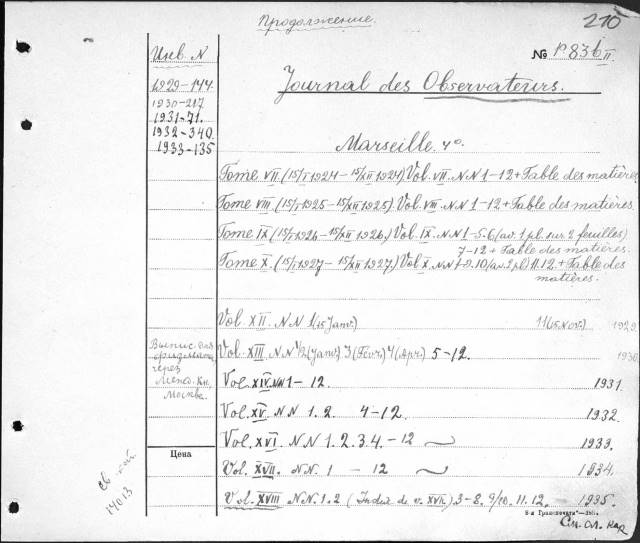 Продолжение.
210
Инв. N
№ Р836 II
1929-144
1930-217
1931-71.
1932-340.
1933-135
Journal des Observateurs.
Marseille. 4°.
Tome VII. (15/I 1924 – 15/XII 1924) Vol. VII. NN 1–12 + Table des matières
Tome VIII. (15/I 1925 – 15/XII 1925). Vol. VIII. NN 1–12 + Table des matières.
Tome IX (15/I 1926 – 15/XII 1926.) Vol. IX. NN 1–5.6 (av. 1 pl. sur 2 feuilles)
7–12 + Table des matières.
Tome X. (15/I 1927 – 15/XII 1927.) Vol X. NN 1–9.10 (av. 2 pl) 11.12. + Table des
matières.
Vol. XII. NN 1 (15 Janv.) 11 (15 Nov.) 1929
Выпис. для
физмат.
через
Межд. Кн.
Москва.
Vol. XIII. NN 1/2 (Janv.) 3 (Févr.) 4 (Apr.) 5–12. 1930
Vol. XIV. NN 1– 12. 1931.
Vol. XV. NN 1. 2. 4–12. 1932.
Vol. XVI. NN 1. 2. 3. 4. – 12 1933.
Цена
Vol. XVII. NN. 1 – 12 1934.
Vol. XVIII NN. 1. 2 (Index de v. XVII.) 3–8. 9/10. 11. 12. 1935.
14013
См. сл. кар